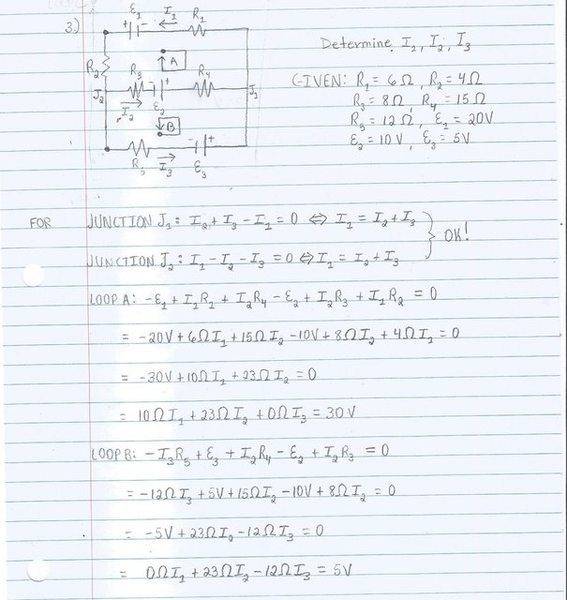 3.)
ε₁ I₁ R₁
+ -
Determine I₁, I₂, I₃
A
R₂ R₃ - + R₄
GIVEN: R₁ = 6Ω, R₂ = 4Ω
J₂ J₁
R₃ = 8Ω, R₄ = 15Ω
I₂ ε₂
R₅ = 12Ω, ε₁ = 20V
B
ε₂ = 10V, ε₃ = 5V
- +
R₅ I₃ ε₃
FOR JUNCTION J₁: I₂ + I₃ - I₁ = 0 ⇔ I₁ = I₂ + I₃
OK!
JUNCTION J₂: I₁ - I₂ - I₃ = 0 ⇔ I₁ = I₂ + I₃
LOOP A: -ε₁ + I₁R₁ + I₂R₄ - ε₂ + I₂R₃ + I₁R₂ = 0
= -20V + 6ΩI₁ + 15ΩI₂ - 10V + 8ΩI₂ + 4ΩI₁ = 0
= -30V + 10ΩI₁ + 23ΩI₂ = 0
= 10ΩI₁ + 23ΩI₂ + 0ΩI₃ = 30V
LOOP B: -I₃R₅ + ε₃ + I₂R₄ - ε₂ + I₂R₃ = 0
= -12ΩI₃ + 5V + 15ΩI₂ - 10V + 8ΩI₂ = 0
= -5V + 23ΩI₂ - 12ΩI₃ = 0
= 0ΩI₁ + 23ΩI₂ - 12ΩI₃ = 5V